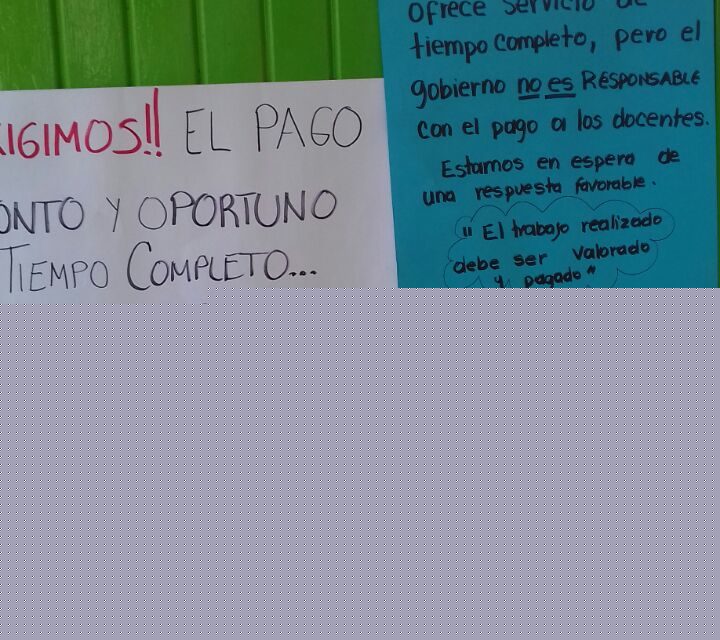 XIGIMOS!! EL PAGO
ONTO Y OPORTUNO
TIEMPO COMPLETO...
ofrece servicio de
tiempo completo, pero el
gobierno no es RESPONSABLE
con el pago a los docentes.
Estamos en espera de
una respuesta favorable.
" El trabajo realizado
debe ser valorado
y pagado "